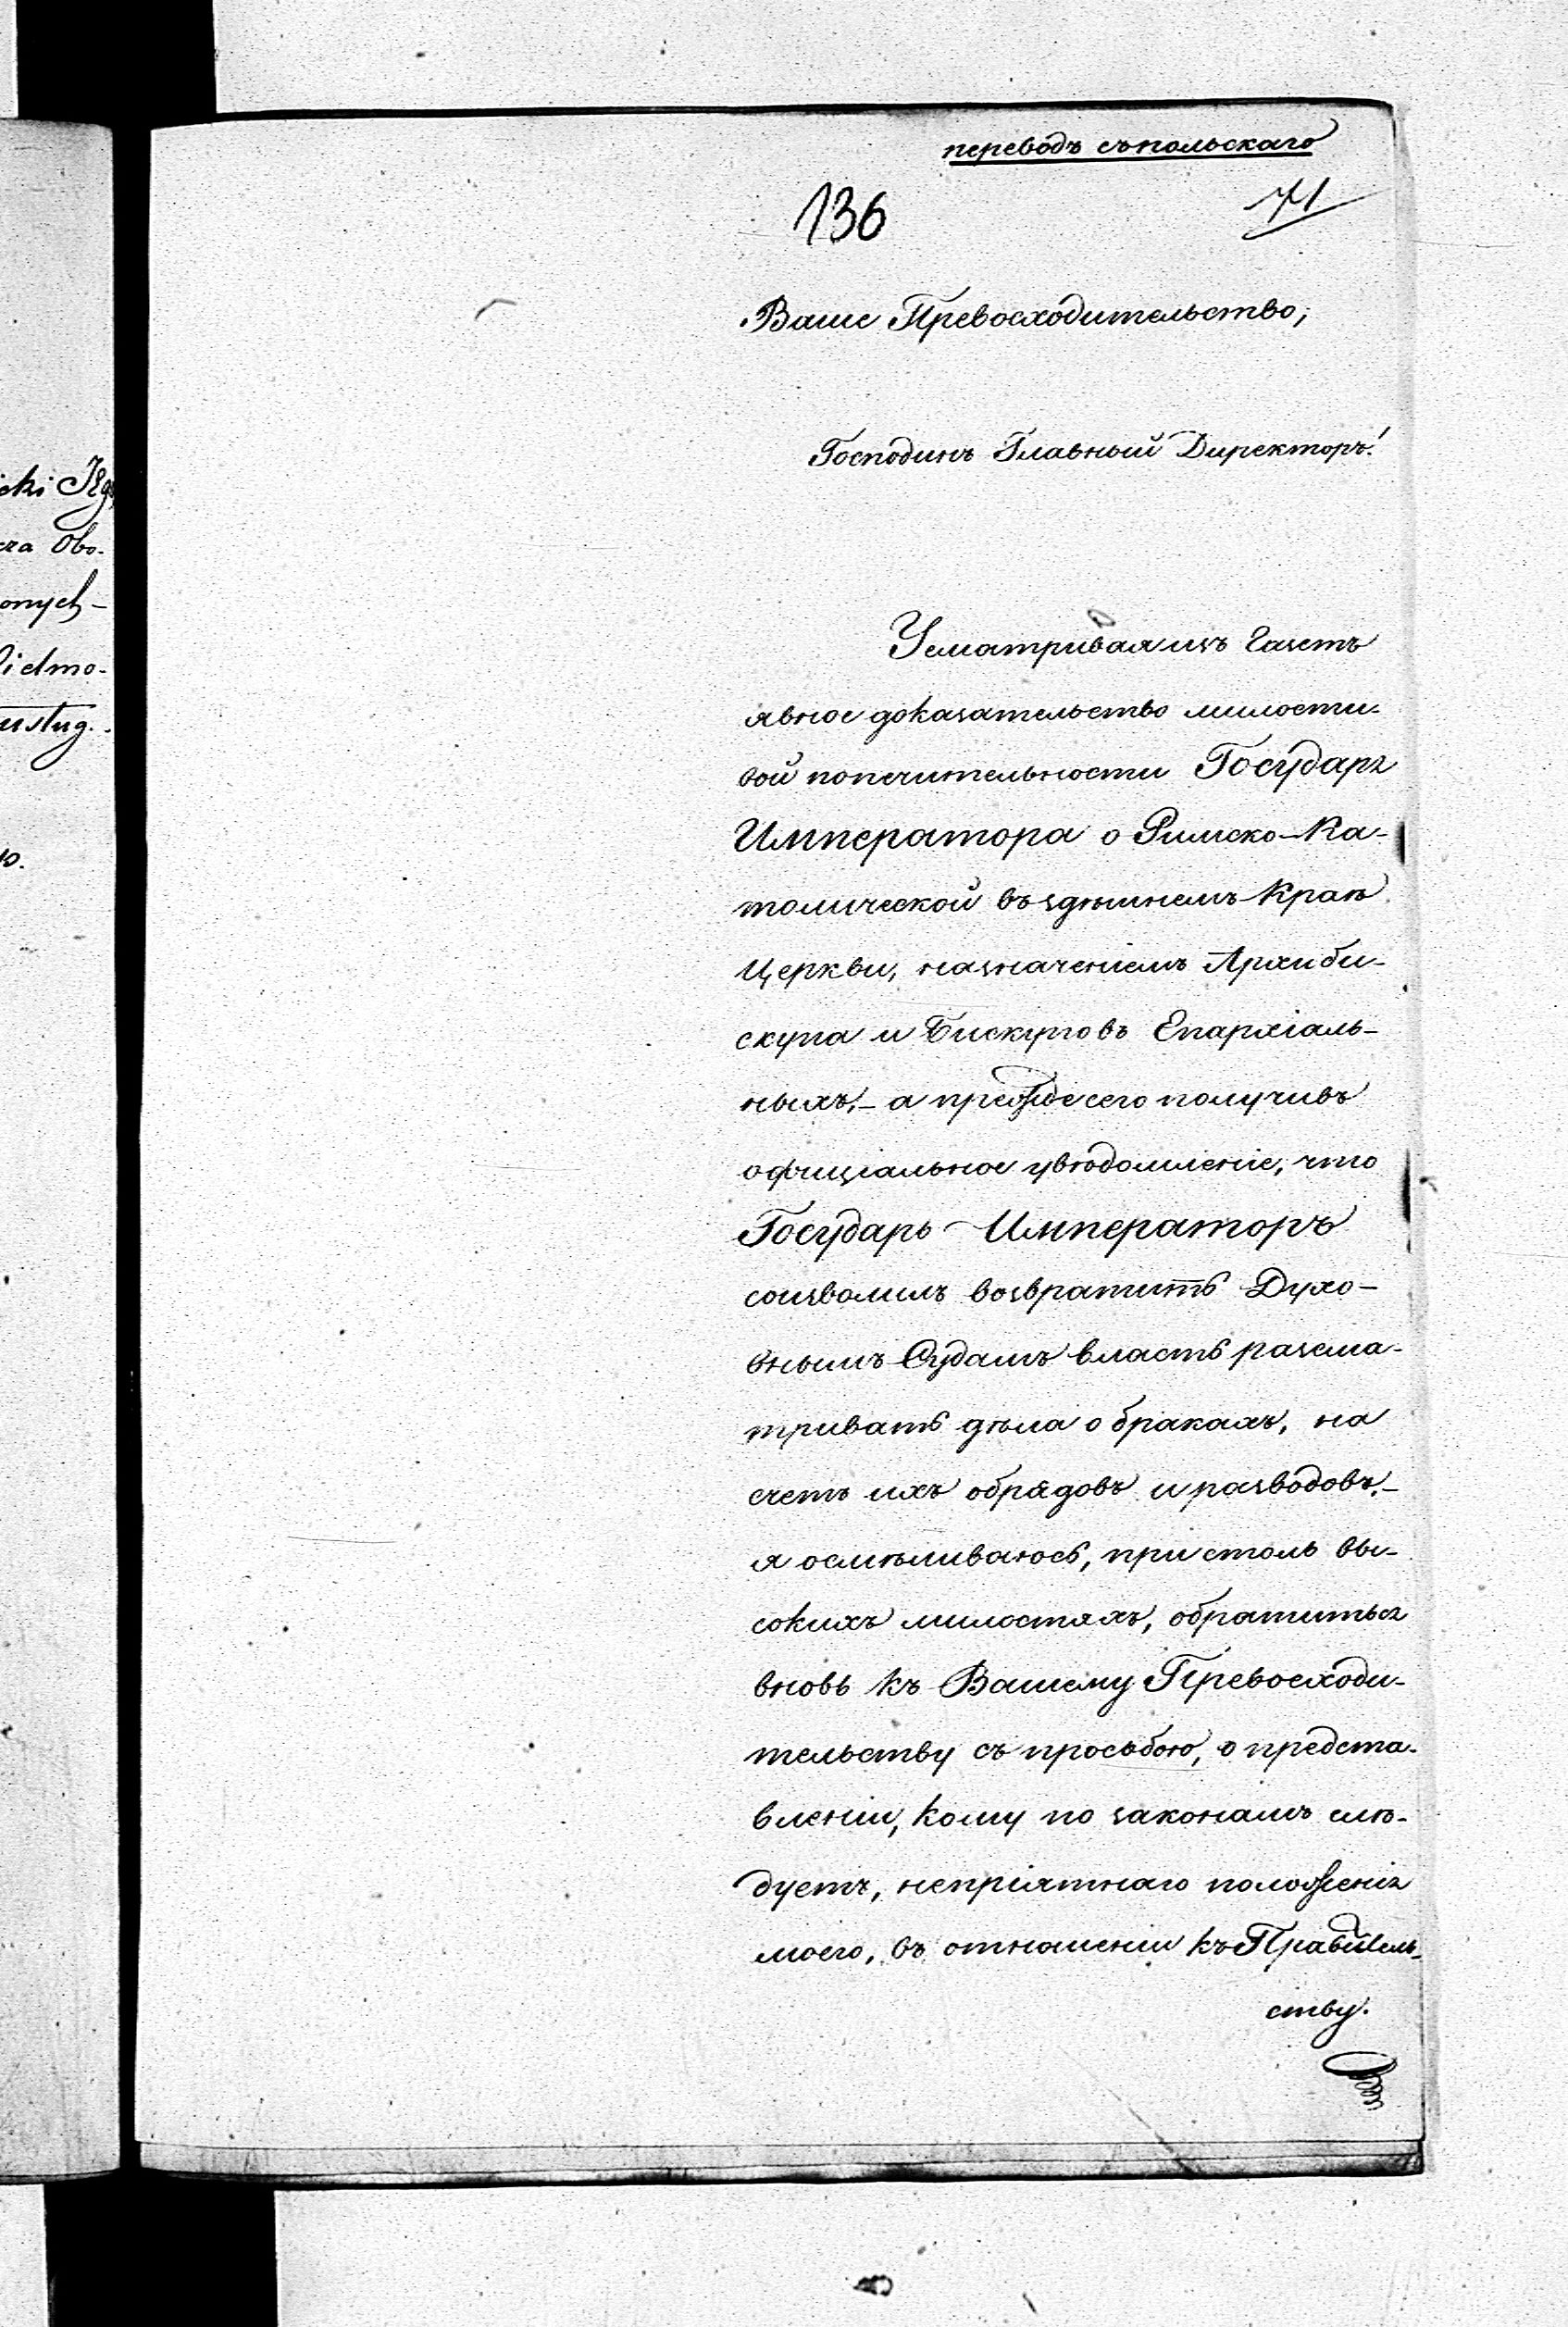 переводъ съ польскаго
136
71
Ваше Превосходительство,
Господинъ Главный Директоръ!
Усматривая изъ Газетъ
явное доказательство милости-
вой попечительности Государя
Императора о Римско-Ка-
толической въ здѣшнемъ Краѣ
Церкви, назначеніемъ Архиби-
скупа и Бискуповъ Епархіаль-
ныхъ,- а прежде сего получивъ
офиціальное увѣдомленіе, что
Государь Императоръ
соизволилъ возвратить Духо-
внымъ Судамъ власть разсма-
тривать дѣла о бракахъ, на
счетъ ихъ обрядовъ и разводовъ,-
я осмѣливаюсь, при столь вы-
сокихъ милостяхъ, обратиться
вновь къ Вашему Превосходи-
тельству съ просьбою, о предста-
вленіи, кому по законамъ слѣ-
дуетъ, непріятнаго положенія
моего, въ отношеніи къ Правитель-
ству.
icki
cza Obo-
onych-
ielmo-
usług.